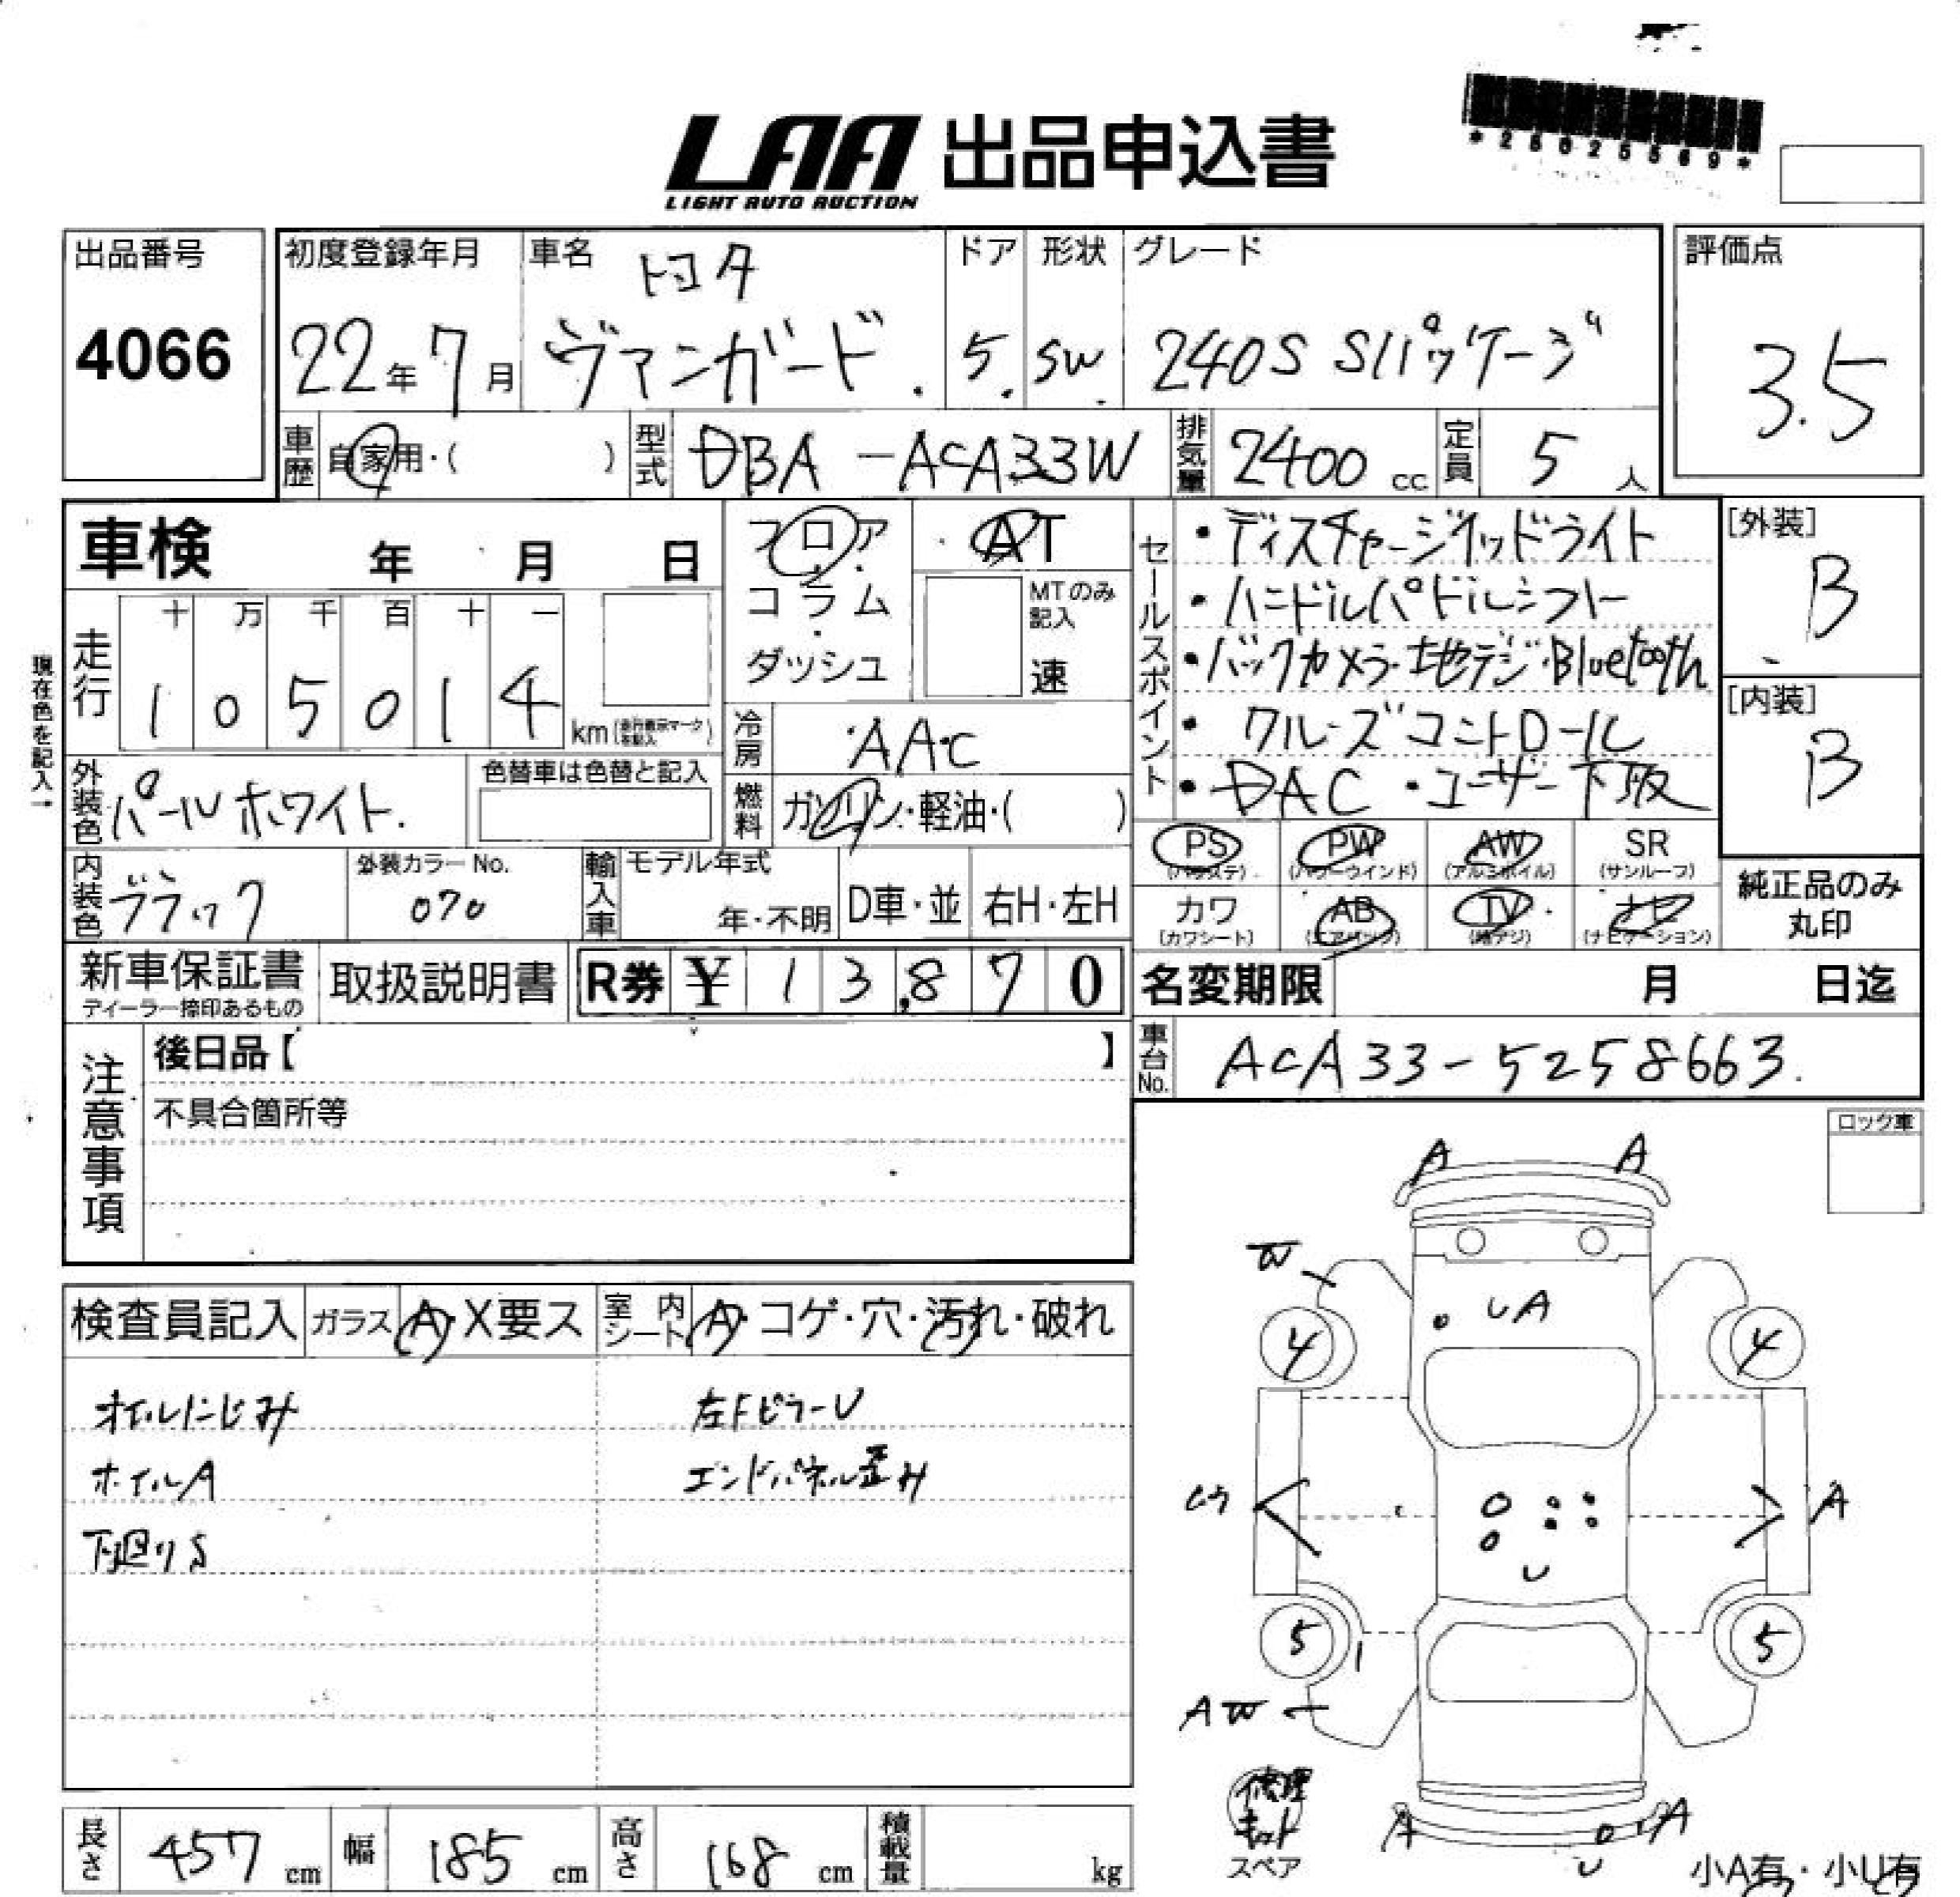 LAA 出品申込書
LIGHT AUTO AUCTION
出品番号
4066
初度登録年月
22年7月
車名
トヨタ
ヴァンガード
ドア
5
形状
SW
グレード
240S Sパッケージ
評価点
3.5
車歴 自家用・( )
型式 DBA-ACA33W
排気量 2400 cc
定員 5人
車検 年 月 日
フロア・コラム・ダッシュ
AT
MTのみ記入
速
セールスポイント
・ディスチャージヘッドライト
・ハンドルパドルシフト
・バックカメラ・地デジ・Bluetooth
・クルーズコントロール
・DAC ・ユーザー下取
[外装]
B
[内装]
B
現在色を記入→
走行
十 万 千 百 十 一
1 0 5 0 1 4 km
冷房 AAC
外装色 パールホワイト
色替車は色替と記入
燃料 ガソリン・軽油・( )
PS (パワステ)
PW (パワーウインド)
AW (アルミホイル)
SR (サンルーフ)
カワ (カワシート)
AB (エアバッグ)
TV (地デジ)
ナビ (ナビゲーション)
純正品のみ
丸印
内装色 ブラック
外装カラーNo.
070
輸入車 モデル年式
年・不明
D車・並
右H・左H
新車保証書
ディーラー捺印あるもの
取扱説明書
R券 ¥ 13,870
名変期限 月 日迄
車台No. ACA33-5258663
注意事項
後日品【 】
不具合箇所等
ロック車
検査員記入
ガラス A・X要ス
室内シート A・コゲ・穴・汚れ・破れ
オイルにじみ
左FピラーU
ホイルA
エンドパネル歪み
下廻りS
A A
W
U A
4 4
A
U
5 5
A W
修理キット
スペア
A A
U
小A有・小U有
長さ 457 cm
幅 185 cm
高さ 168 cm
積載量 kg